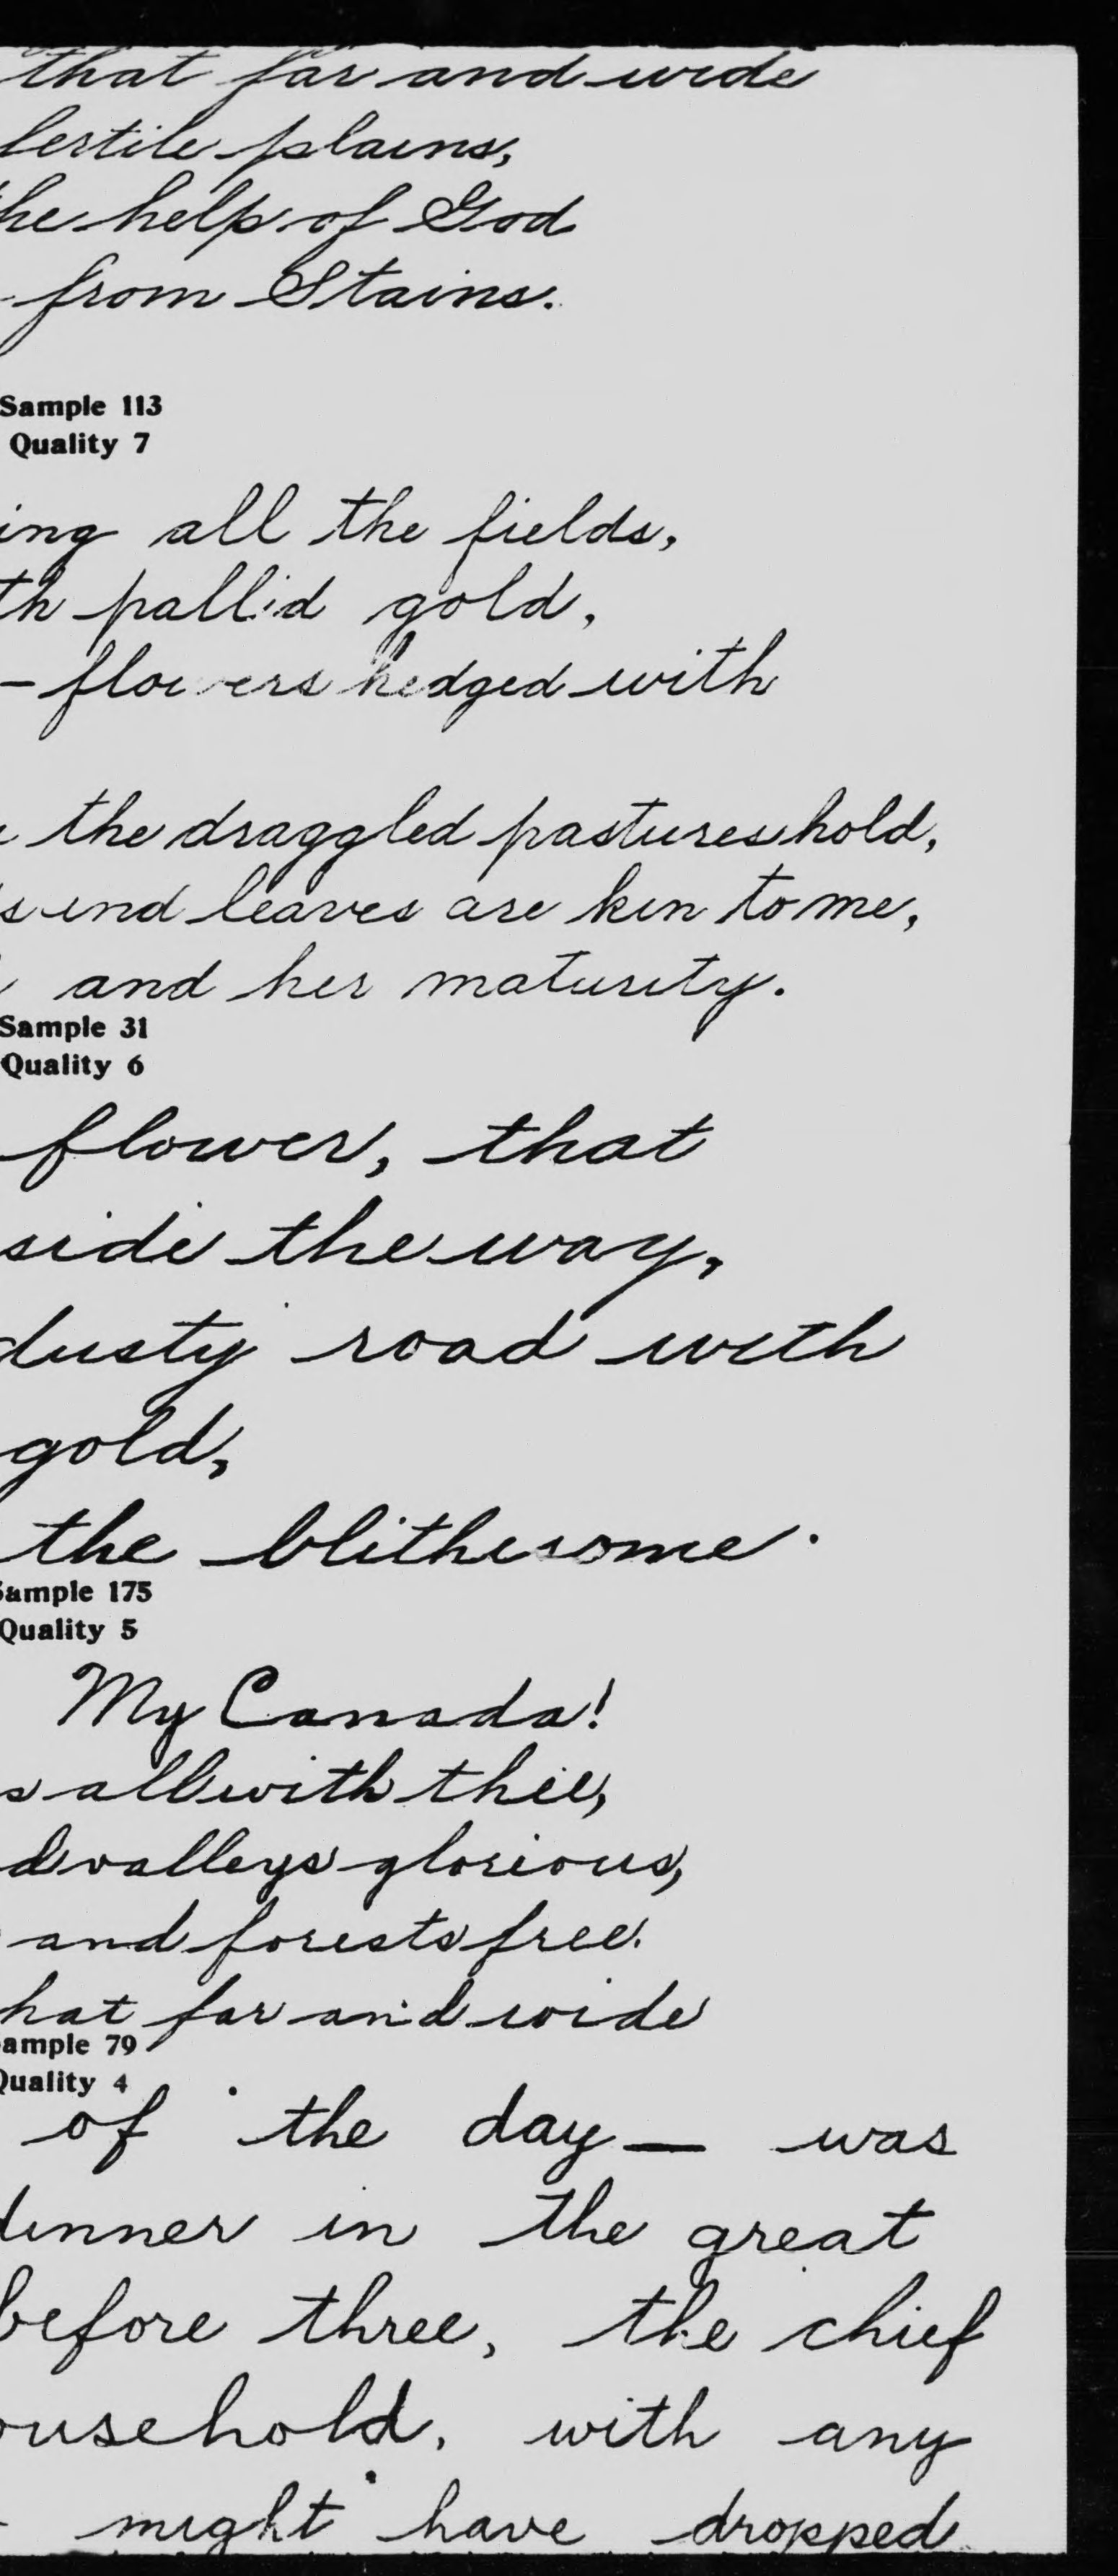 that far and wide
fertile plains,
the help of God
from Stains.
Sample 113
Quality 7
ing all the fields,
th pallid gold,
- flowers hedged with
the draggled pastures hold,
s and leaves are kin to me,
and her maturity.
Sample 31
Quality 6
flower, that
side the way,
dusty road with
gold,
the blithesome
Sample 175
Quality 5
My Canada!
s all with thee,
d valleys glorious,
and forests free.
hat far and wide
ample 79
Quality 4
of the day— was
dinner in the great
before three, the chief
ousehold, with any
might have dropped